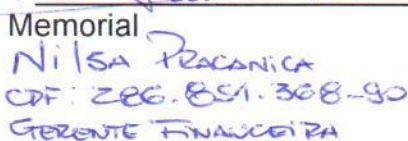 Memorial
Nilsa Pracanica
CPF: 286.851.368-90
GERENTE FINANCEIRA